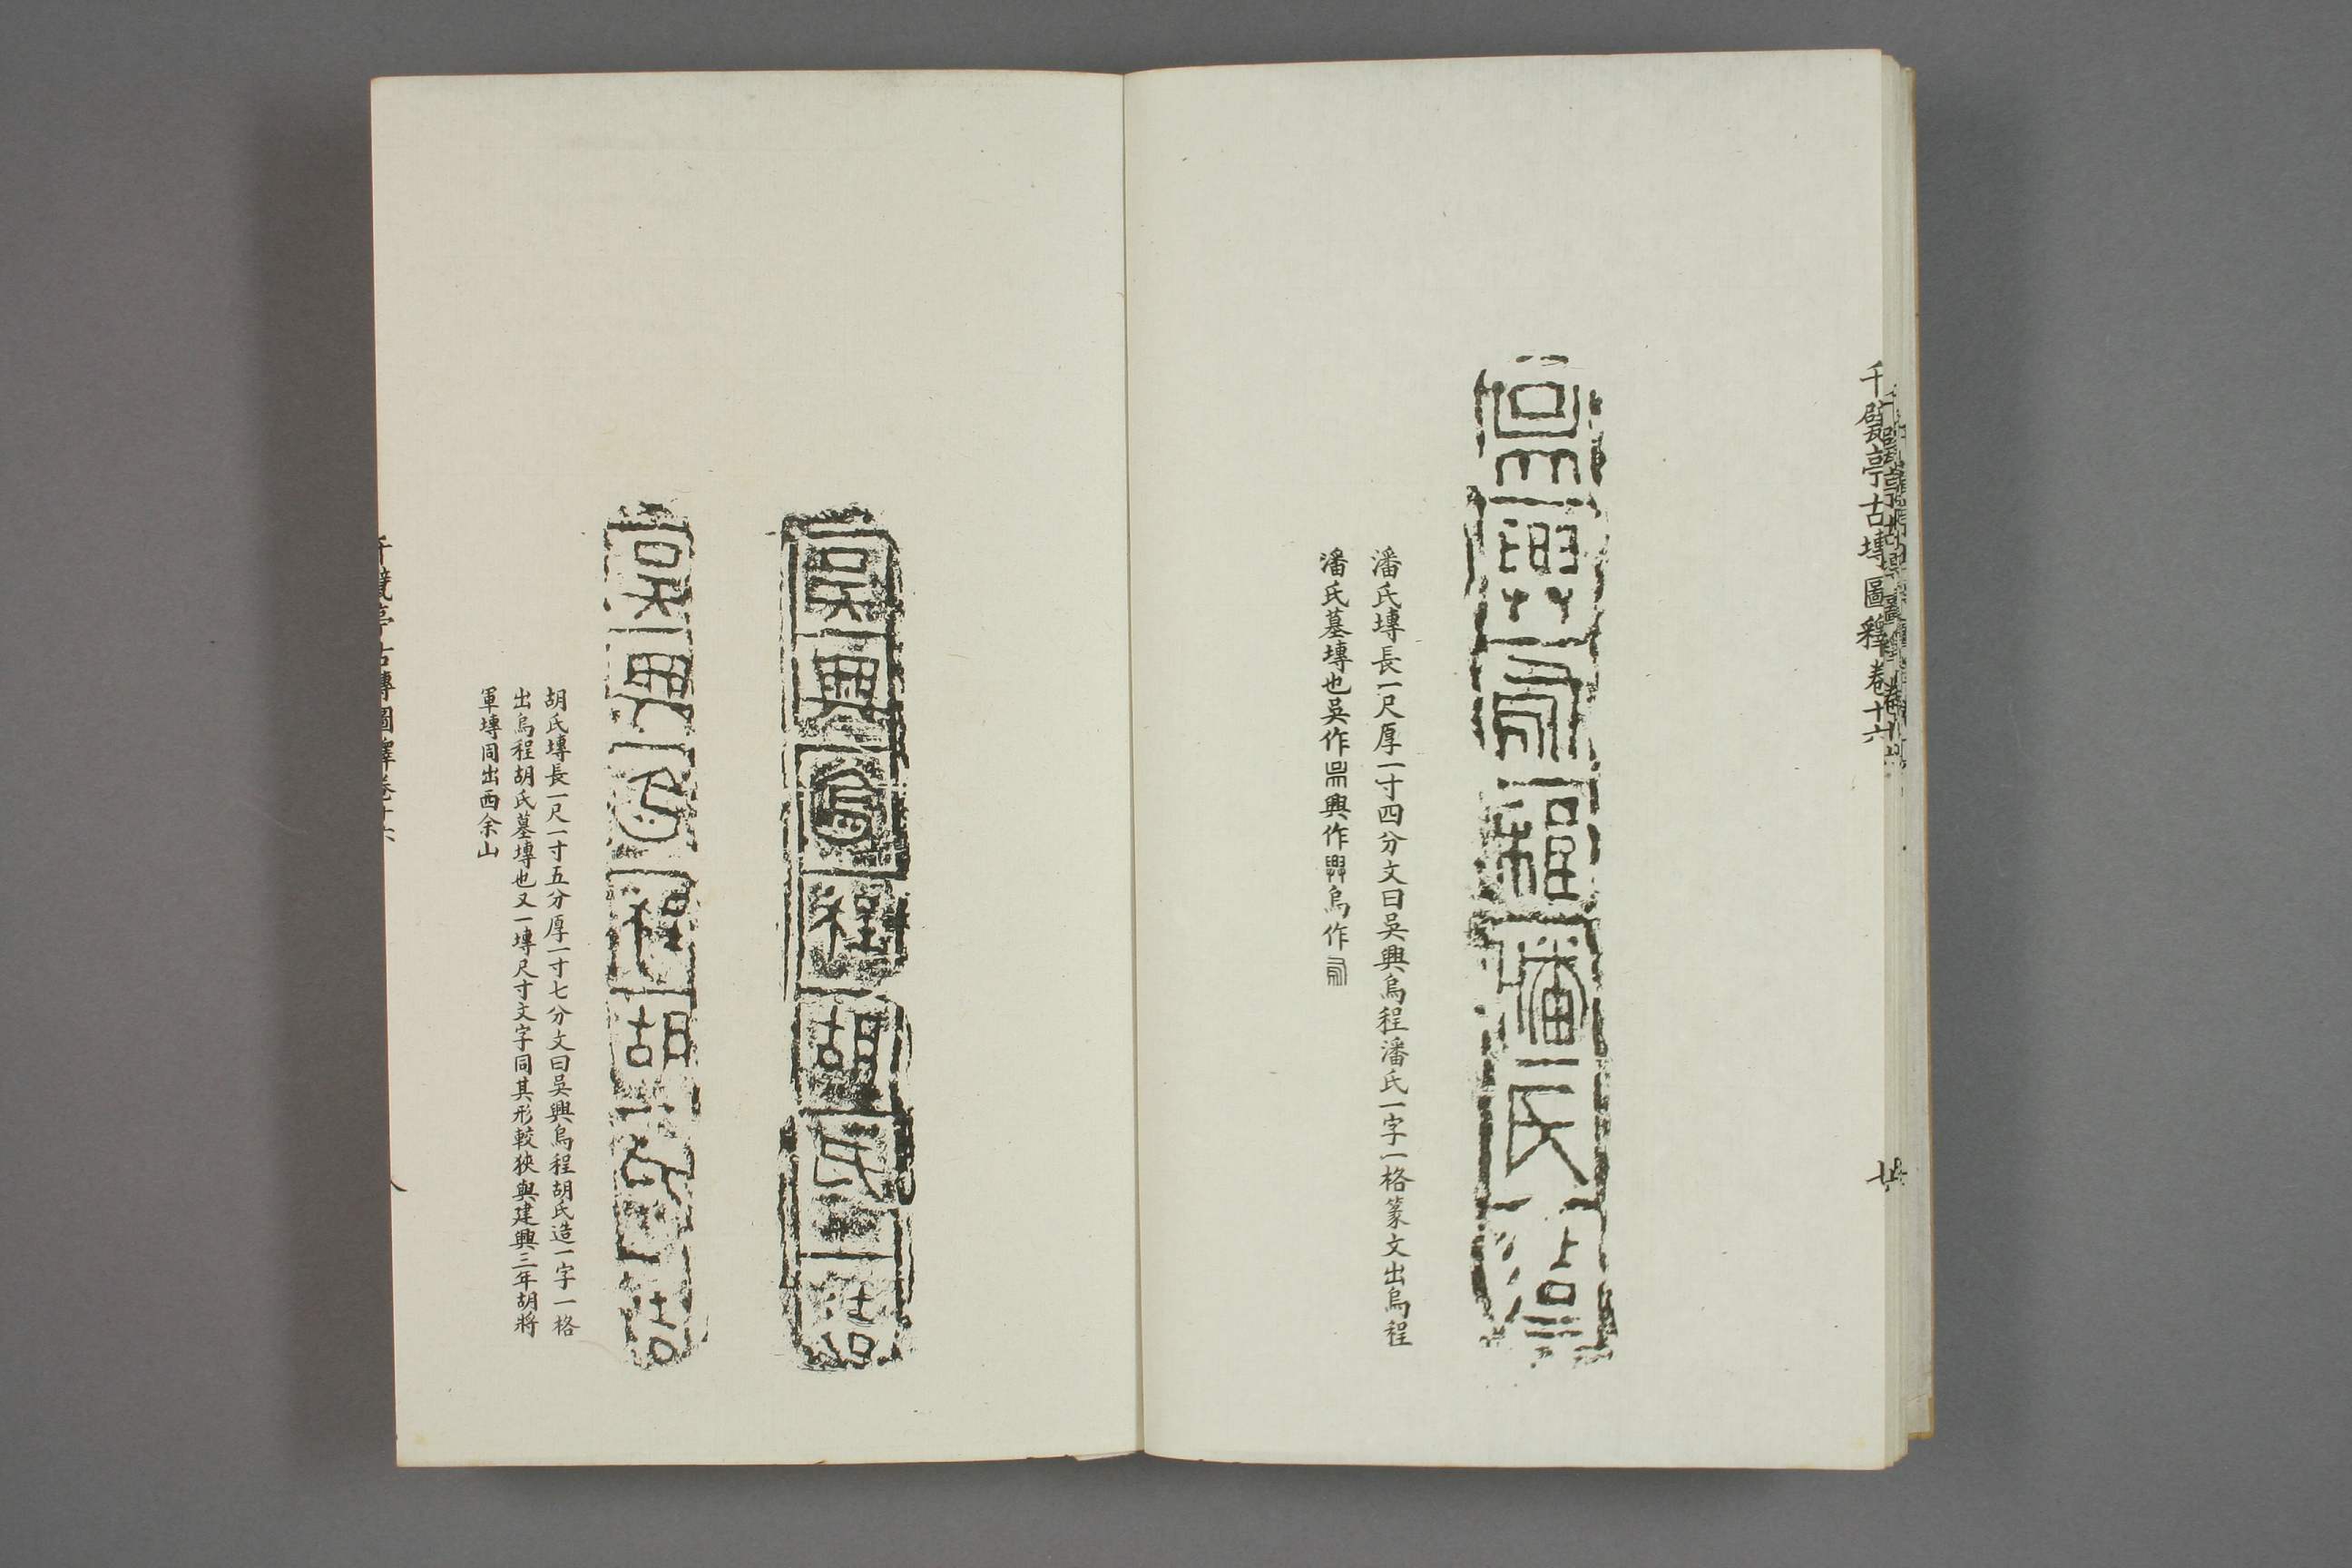 千甓亭古塼圖釋卷十六
七
吳興烏程潘氏造
潘氏塼長一尺厚一寸四分文曰吳興烏程潘氏一字一格篆文出烏程
潘氏墓塼也吳作興作烏作
吳興烏程胡氏造
吳興烏程胡氏造
胡氏塼長一尺一寸五分厚一寸七分文曰吳興烏程胡氏造一字一格
出烏程胡氏墓塼也又一塼尺寸文字同其形較狹與建興三年胡將
軍塼同出西余山
千甓亭古塼圖釋卷十六
八